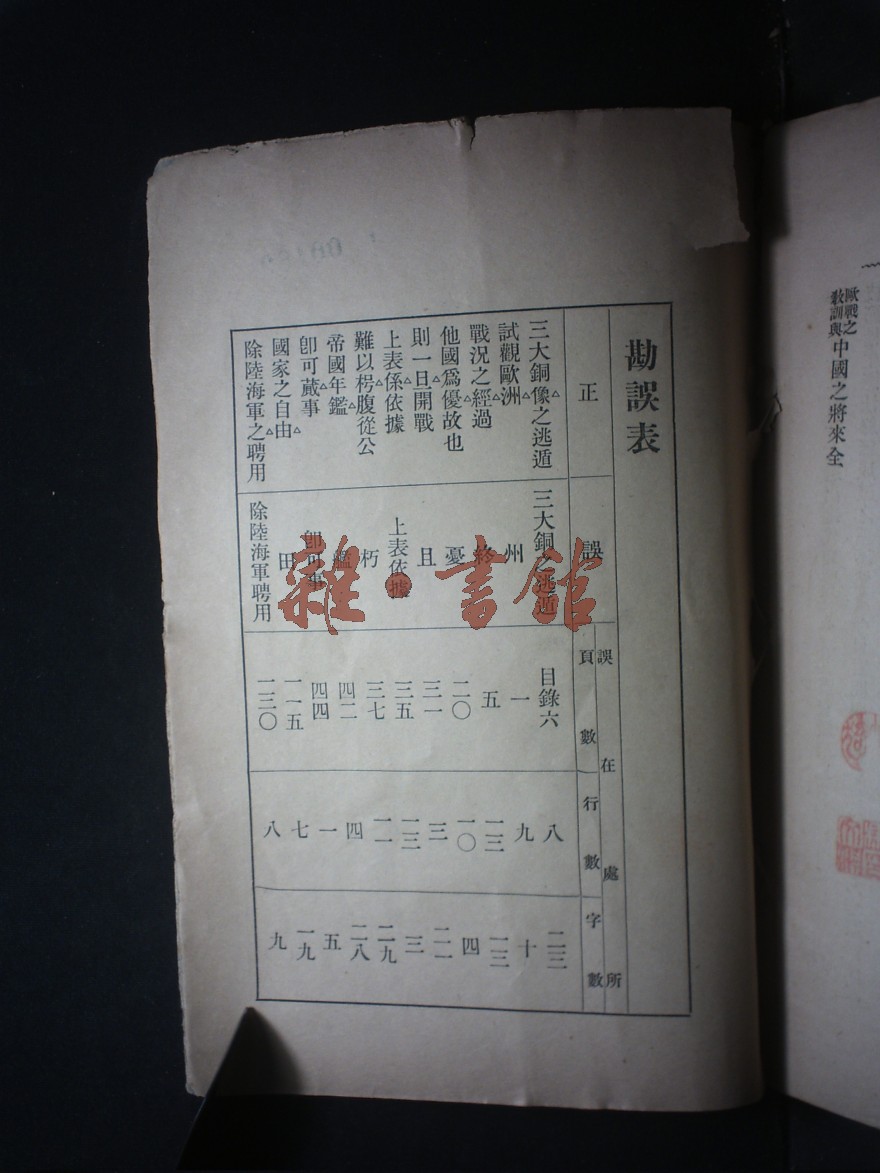 歐戰之
教訓與中國之將來全
勘誤表
正 誤 誤在處所
頁數 行數 字數
三大銅像之逃遁 三大銅之逃遁 目錄六 八 二三
試觀歐洲 州 一 九 十
戰況之經過 終 五 一三 一三
他國爲優故也 憂 二〇 一〇 四
則一旦開戰 且 三一 三 二一
上表係依據 上表依據 三五 一三 三
難以枵腹從公 朽 三七 一一 二九
帝國年鑑 艦 四二 四 二八
卽可蕆事 卽可事 四四 一 五
國家之自由 田 一一五 七 一九
除陸海軍之聘用 除陸海軍聘用 一三〇 八 九
雜·書館